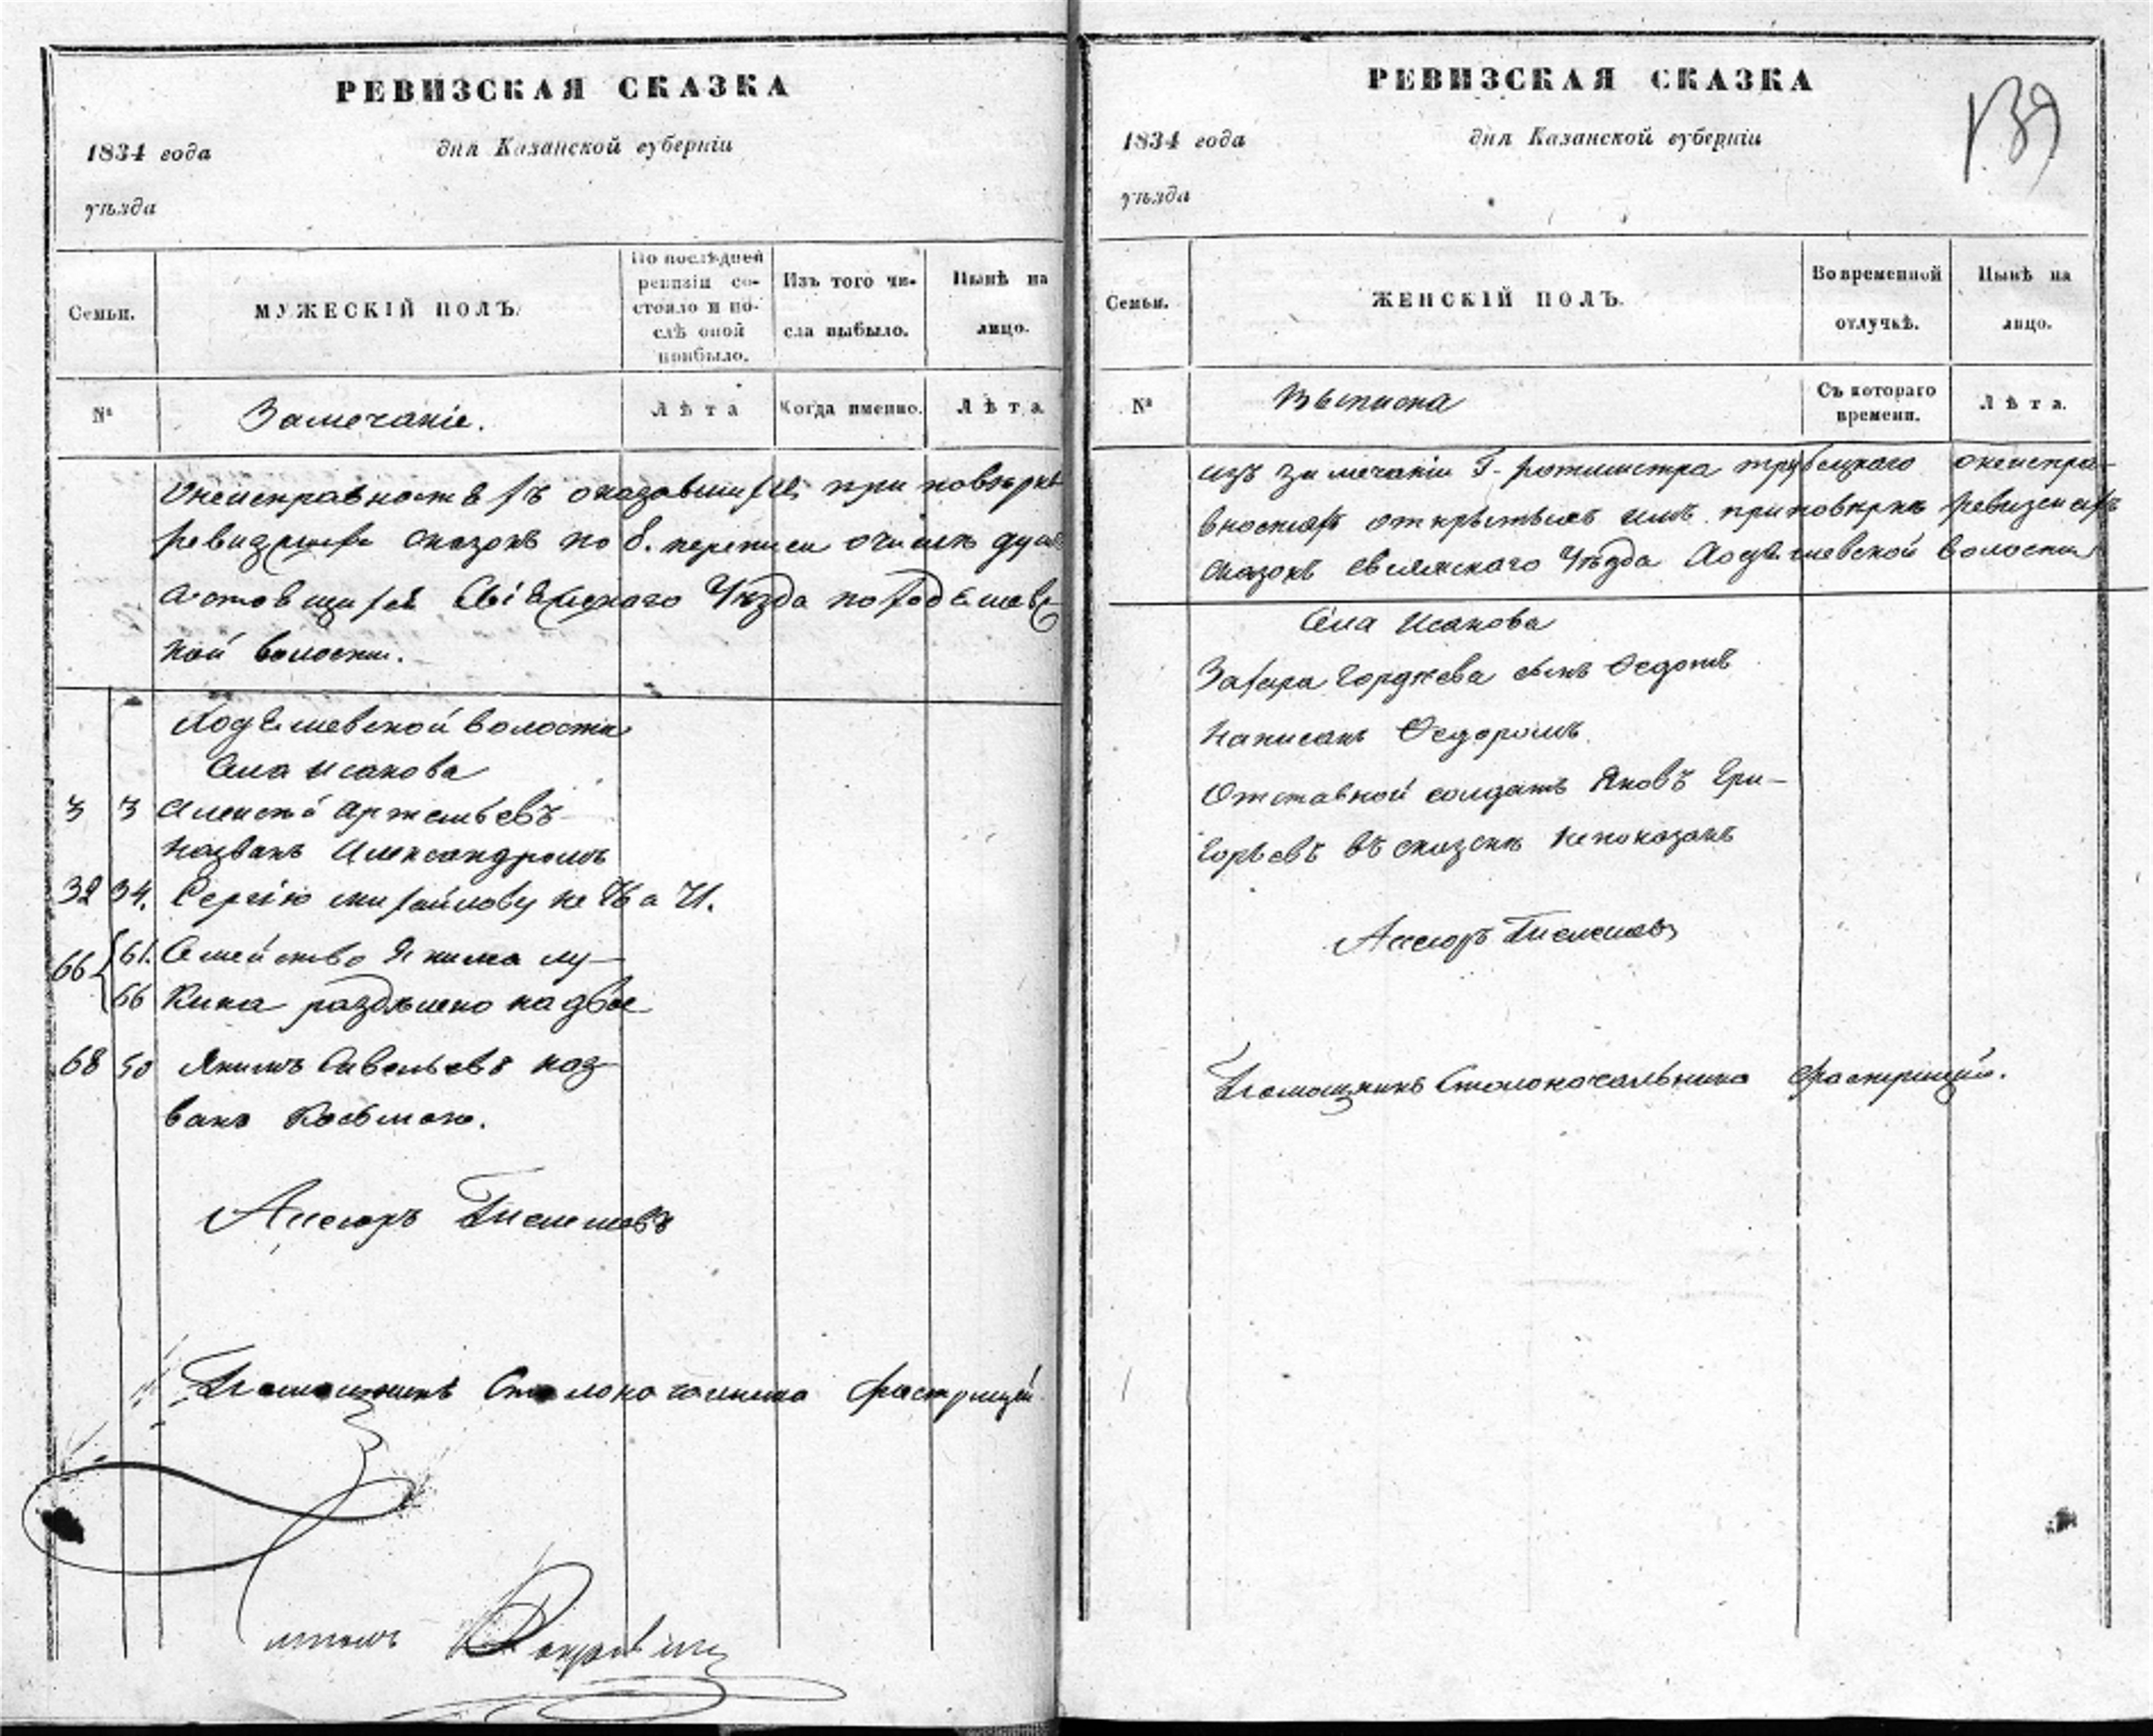 РЕВИЗСКАЯ СКАЗКА
1834 года дня Казанской губерніи
уѣзда
Семьи.
МУЖЕСКІЙ ПОЛЪ.
По послѣдней
ревизіи со-
стояло и по-
слѣ оной
прибыло.
Изъ того чи-
сла выбыло.
Нынѣ на
лицо.
№
Замечаніе.
Лѣта
Когда именно.
Лѣта.
Онеисправностяхъ оказавшихся при повѣркѣ
ревизскихъ сказокъ по 8. переписи очисле душъ
состоящихъ Свіяжскаго Уѣзда по Ходяшевс
кой волости.
Ходяшевской волости
Села Исакова
3 3 Алексѣй Артемьевъ
названъ Александромъ
32 34. Сергію Михайлову не 76 а 71.
66 61. Семейство Якима Лу-
66 кина раздѣлено на двое
68 50 Якимъ Савельевъ наз-
ванъ Косьмою.
Асесоръ
Помощникъ Столоначальника
РЕВИЗСКАЯ СКАЗКА
139
1834 года дня Казанской губерніи
уѣзда
Семьи.
ЖЕНСКІЙ ПОЛЪ.
Во временной
отлучкѣ.
Нынѣ на
лицо.
№
Выписка
Съ котораго
времени.
Лѣта.
изъ замечаніи Г. ротмистра Трубецкаго онеиспра-
вностяхъ открытыхъ имъ приповѣркѣ ревизскихъ
сказокъ Свіяжскаго Уѣзда Ходяшевской волости
Села Исакова
Захара Гордѣева сынъ Федотъ
Написанъ Федоромъ.
Отставной солдатъ Яковъ Гри-
горьевъ въ сказкѣ непоказанъ
Асесоръ
Помощникъ Столоначальника